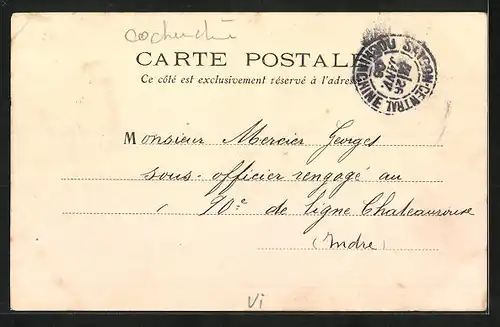 CARTE POSTALE
Ce côté est exclusivement réservé à l'adresse
SAIGON-CENTRAL
26
JANV.
COCHINCHINE
Monsieur Mercier Georges
sous-officier rengagé au
90e de ligne Chateauroux
(Indre)
Vi